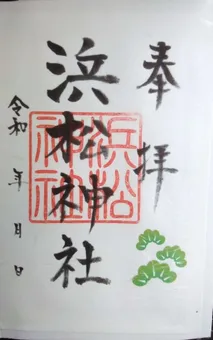 奉拝
浜松神社
令和 年 月 日
浜松
神社